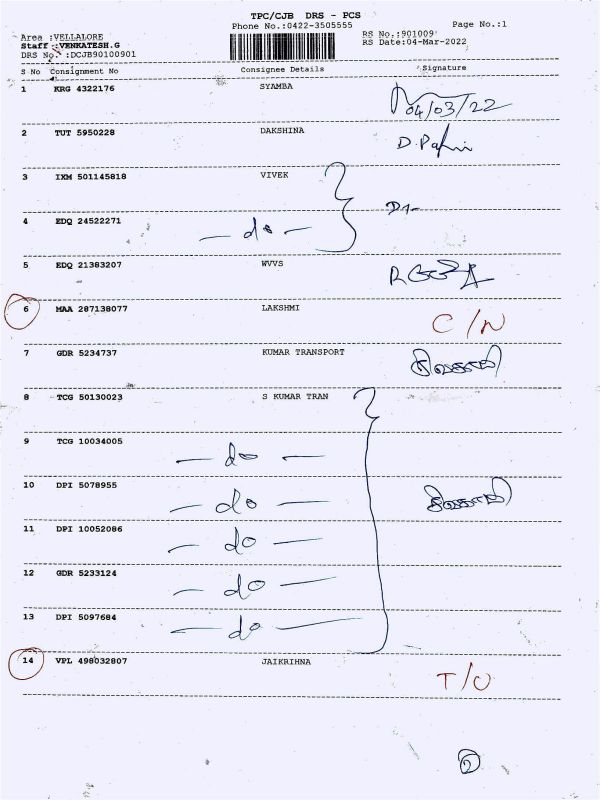 TPC/CJB DRS - PCS
Phone No.:0422-3505555
Page No.:1
Area :VELLALORE
Staff :VENKATESH.G
DRS No. :DCJB90100901
RS No.:901009
RS Date:04-Mar-2022
S No Consignment No Consignee Details Signature
1 KRG 4322176 SYAMBA
04/03/22
2 TUT 5950228 DAKSHINA
3 IXM 501145818 VIVEK
4 EDQ 24522271 — do —
5 EDQ 21383207 WVVS
6 MAA 287138077 LAKSHMI C/N
7 GDR 5234737 KUMAR TRANSPORT
8 TCG 50130023 S KUMAR TRAN
9 TCG 10034005 — do —
10 DPI 5078955 — do —
11 DPI 10052086 — do —
12 GDR 5233124 — do —
13 DPI 5097684 — do —
14 VPL 498032807 JAIKRIHNA T/O